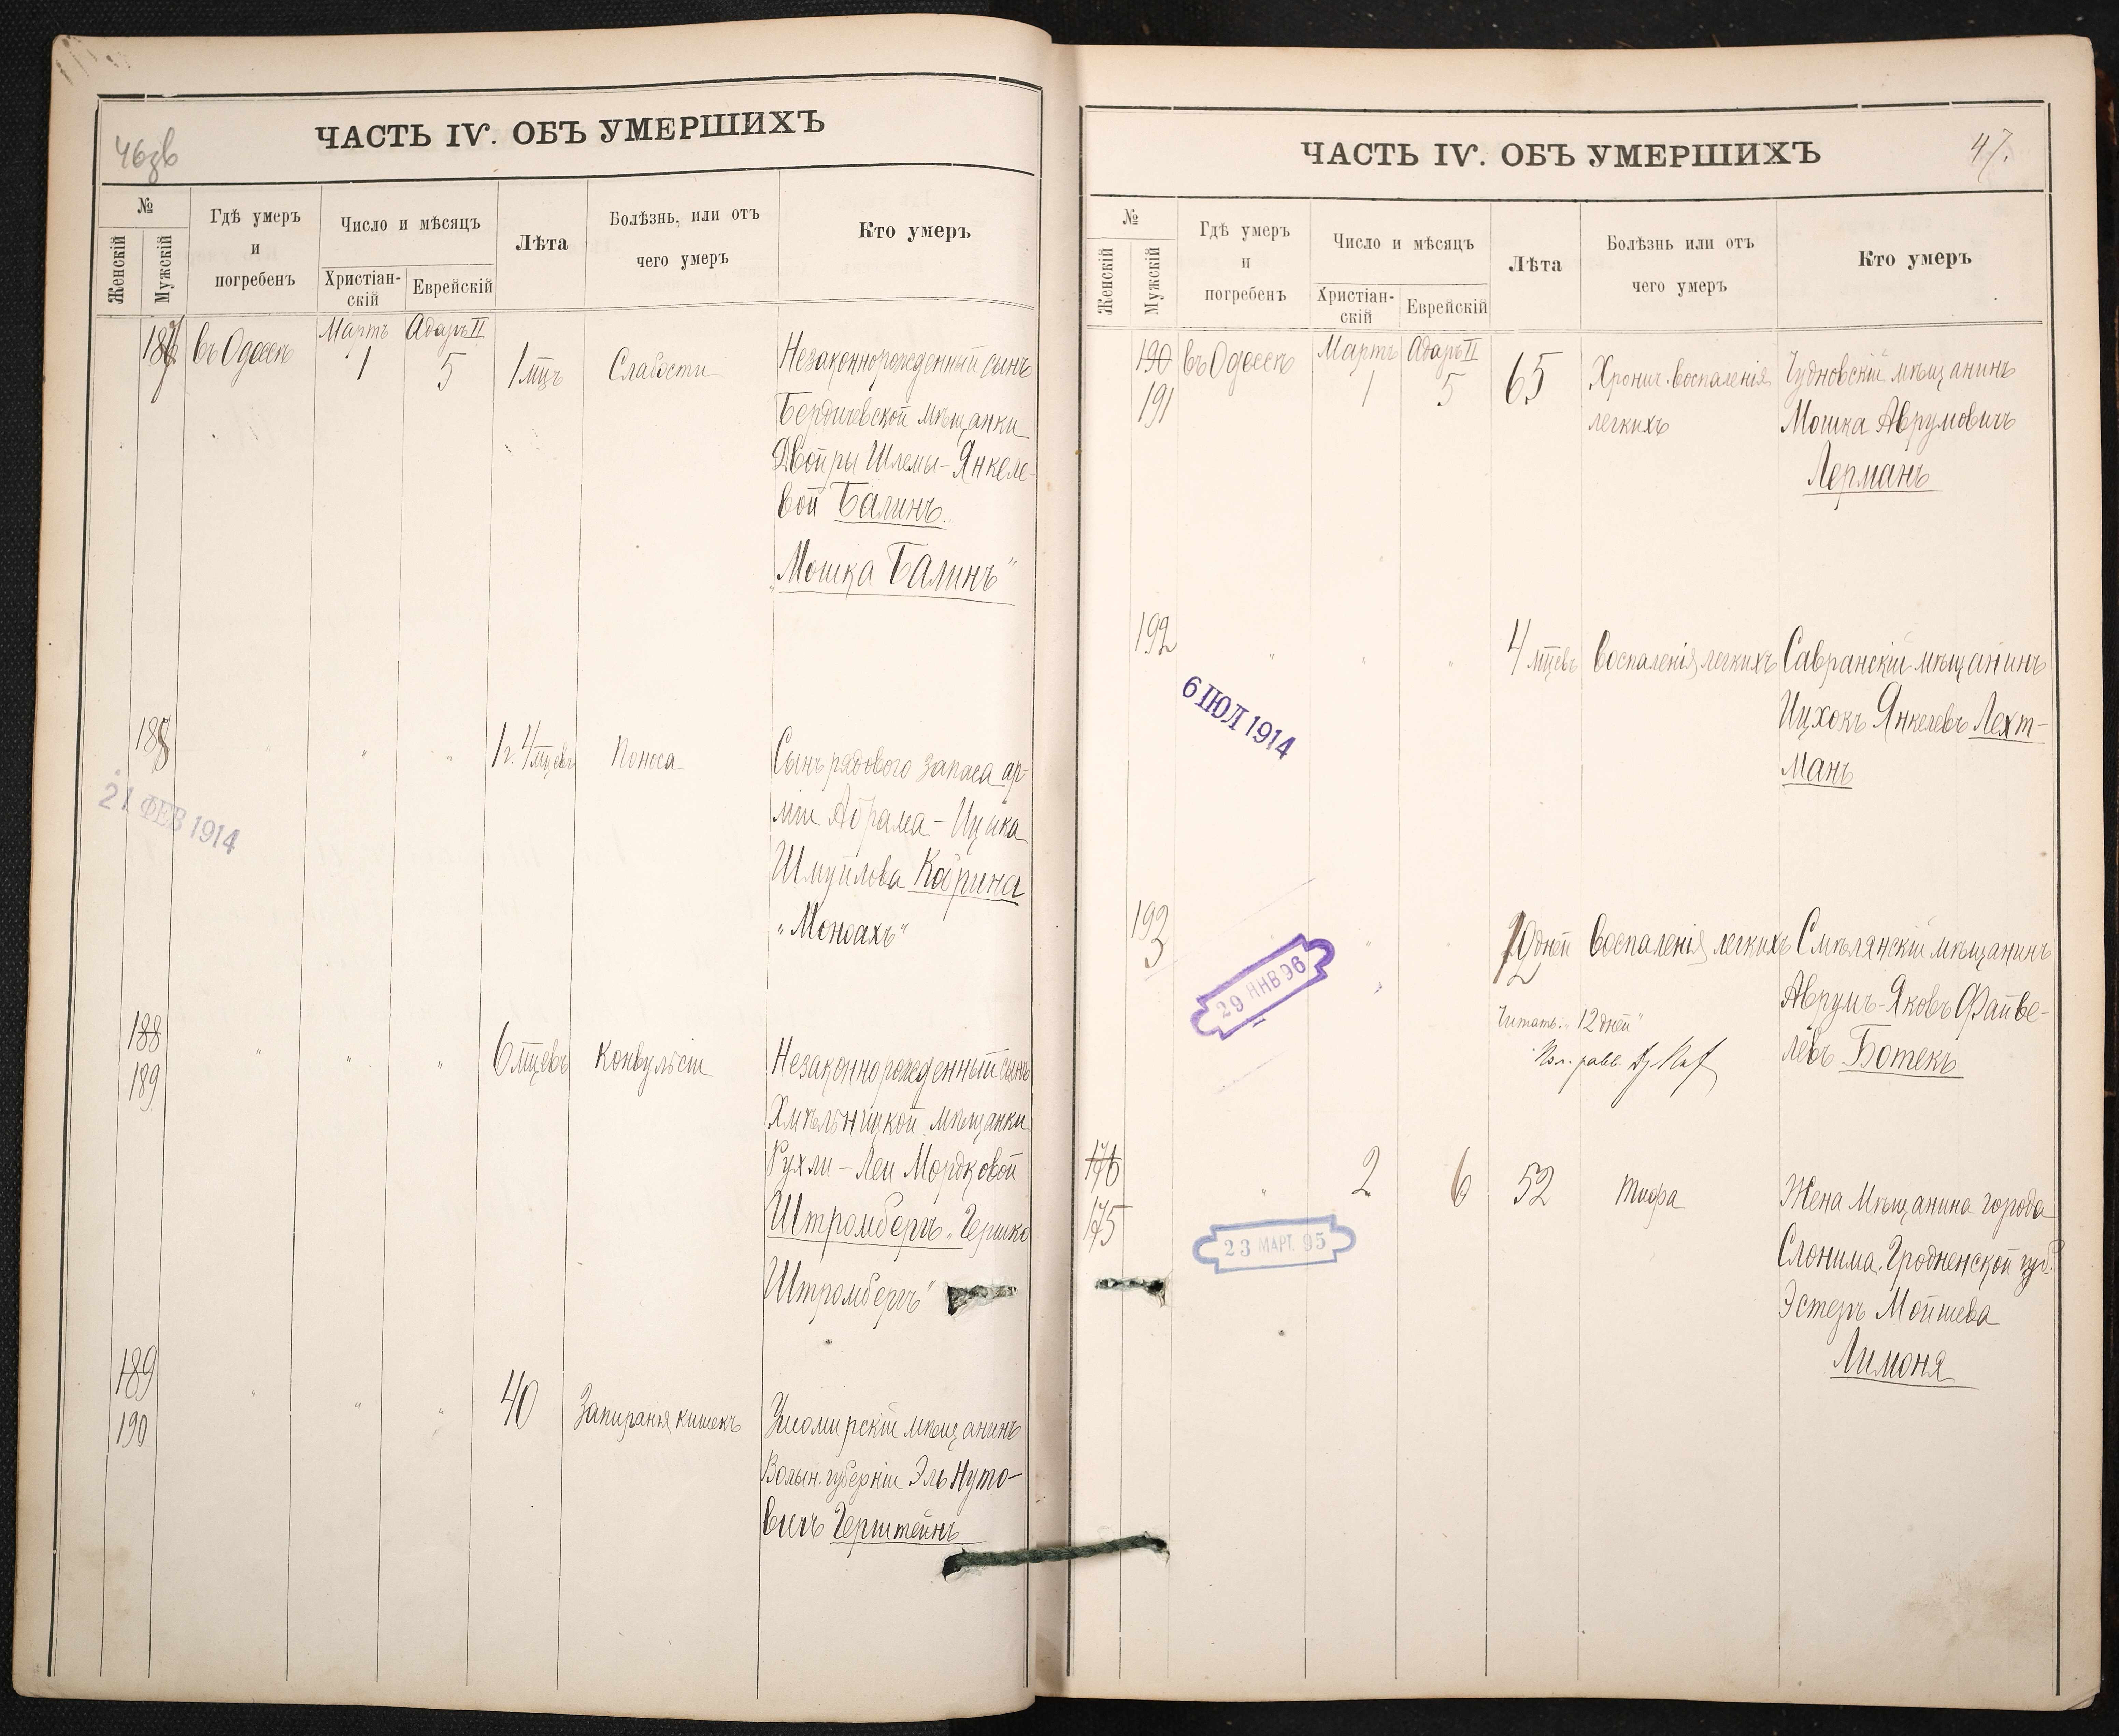 46зв
ЧАСТЬ IV. ОБЪ УМЕРШИХЪ
№
Женскій
Мужскій
Гдѣ умеръ
и
погребенъ
Число и мѣсяцъ
Христіан-
скій
Еврейскій
Лѣта
Болѣзнь, или отъ
чего умеръ
Кто умеръ
187 въ Одессѣ Мартъ 1 Адаръ II 5 1 мцъ Слабости Незаконнорожденный сынъ
Бердичевской мѣщанки
Двойры Шлемы-Янкеле-
вой Балинъ.
„Мошка Балинъ"
188 " " " 1 г. 4 мцевъ Поноса Сынъ рядового запаса ар-
міи Абрама-Ицька
Шмуилова Кабрина
„Моноахъ"
21 ФЕВ 1914
188
189 " " " 6 мцевъ Конвульсіи Незаконнорожденный сынъ
Хмѣльницкой мѣщанки
Рухли-Леи Мордковой
Штромбергъ „Гершко
Штромбергъ"
189
190 " " " 40 Запиранія кишекъ мѣщанинъ
Волын. губерніи Эль Нуто-
вичъ Герштейнъ
ЧАСТЬ IV. ОБЪ УМЕРШИХЪ
47.
№
Женскій
Мужскій
Гдѣ умеръ
и
погребенъ
Число и мѣсяцъ
Христіан-
скій
Еврейскій
Лѣта
Болѣзнь или отъ
чего умеръ
Кто умеръ
190 въ Одессѣ Мартъ Адаръ II 65 Хронич. воспаленія Чудновскій мѣщанинъ
191 1 5 легкихъ Мошка Аврумовичъ
Лерманъ
192 " " " 4 мцевъ Воспаленія легкихъ Савранскій мѣщанинъ
Ицхокъ Янкелевъ Лехт-
манъ
6 ІЮЛ 1914
193 " " 12 дней Воспаленія легкихъ Смѣлянскій мѣщанинъ
Аврумъ-Яковъ Файве-
левъ Ботекъ
Читать: „12 дней"
29 ЯНВ 96
176
175 " 2 6 52 Тифа Жена мѣщанина города
Слонима Гродненской губ.
Эстеръ Мойшева
Лимоня
23 МАРТ. 95